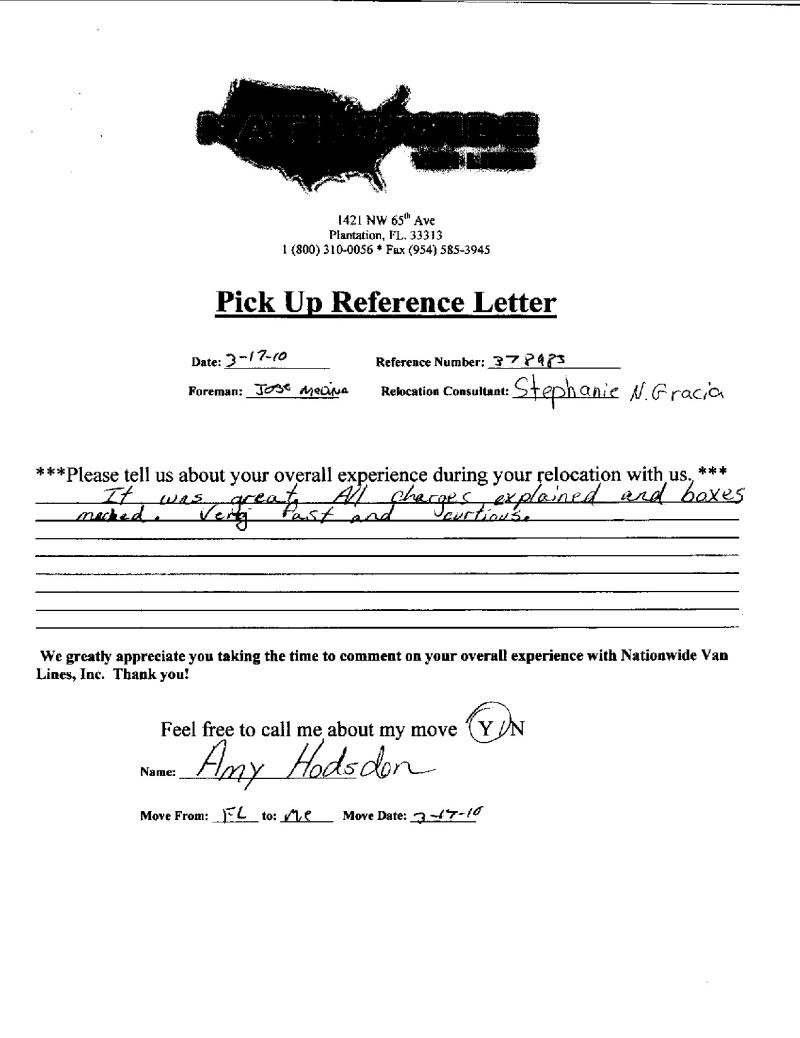 NATIONWIDE
VAN LINES
1421 NW 65th Ave
Plantation, FL. 33313
1 (800) 310-0056 * Fax (954) 585-3945
Pick Up Reference Letter
Date: 3-17-10 Reference Number: 378983
Foreman: Jose Medina Relocation Consultant: Stephanie N. Gracia
***Please tell us about your overall experience during your relocation with us. ***
It was great. All charges explained and boxes
marked. Very fast and curtious.
We greatly appreciate you taking the time to comment on your overall experience with Nationwide Van
Lines, Inc. Thank you!
Feel free to call me about my move Y/N
Name: Amy Hodsdon
Move From: FL to: Me Move Date: 3-17-10